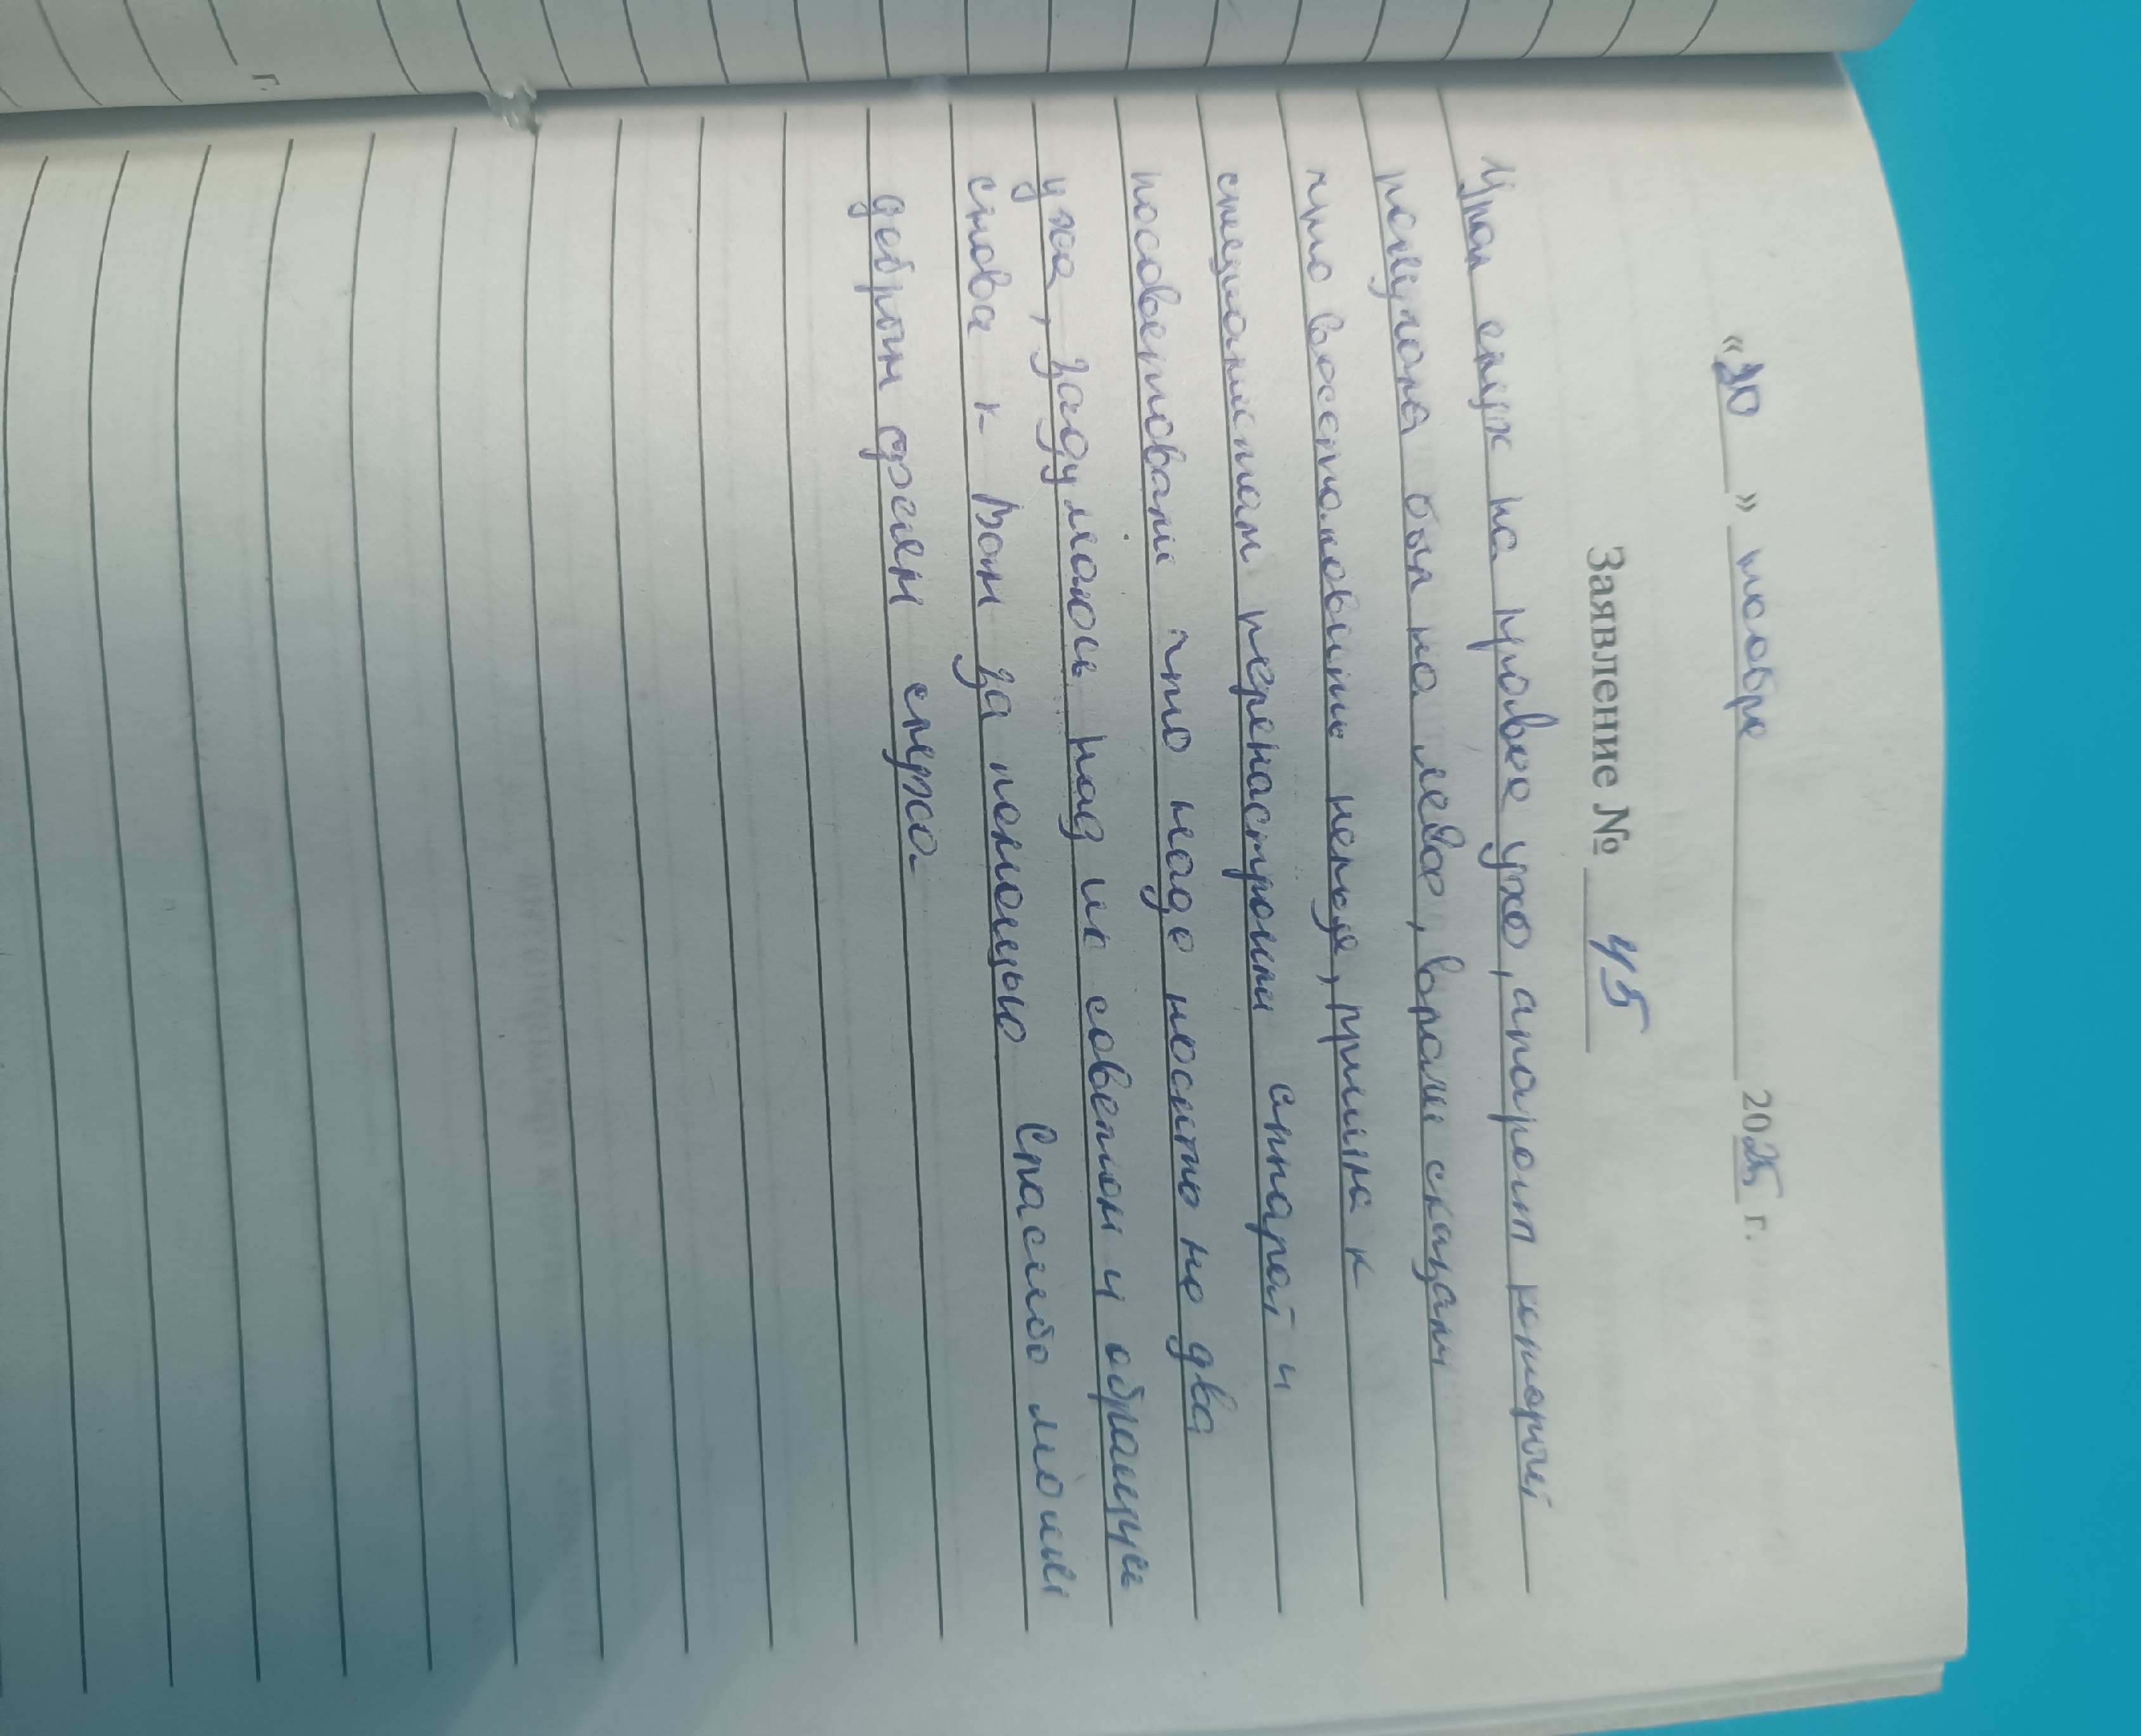 «30» ноября 2025 г.
Заявление № 45
Упал слух на правое ухо, апарат который
получала был на левое, врали сказали
что восстоновить нельзя, пришла к
специалистам перенастроили аппарат и
посоветовали что надо носить не два
уха, задумалось над их советом и обращаюсь
снова к Вам за помощью Спасибо моим
добрым фееям слуха.
г.